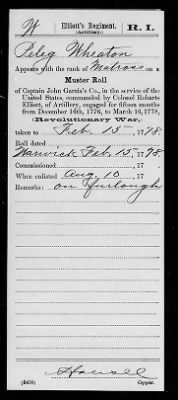 W | Elliott's Regiment. (Artillery.) | R. I.
Peleg Wheaton
Appears with the rank of Matross on a
Muster Roll
of Captain John Garzia's Co., in the service of the
United States, commanded by Colonel Robarts
Elliott, of Artillery, engaged for fifteen months
from December 16th, 1776, to March 16, 1778,
(Revolutionary War,)
taken to Feb. 15, 1778.
Roll dated
Warwick Feb. 15, 1778.
Commissioned , 17 .
When enlisted Aug 10, 17 .
Remarks: on Furlough
Howell
(543) Copyist.